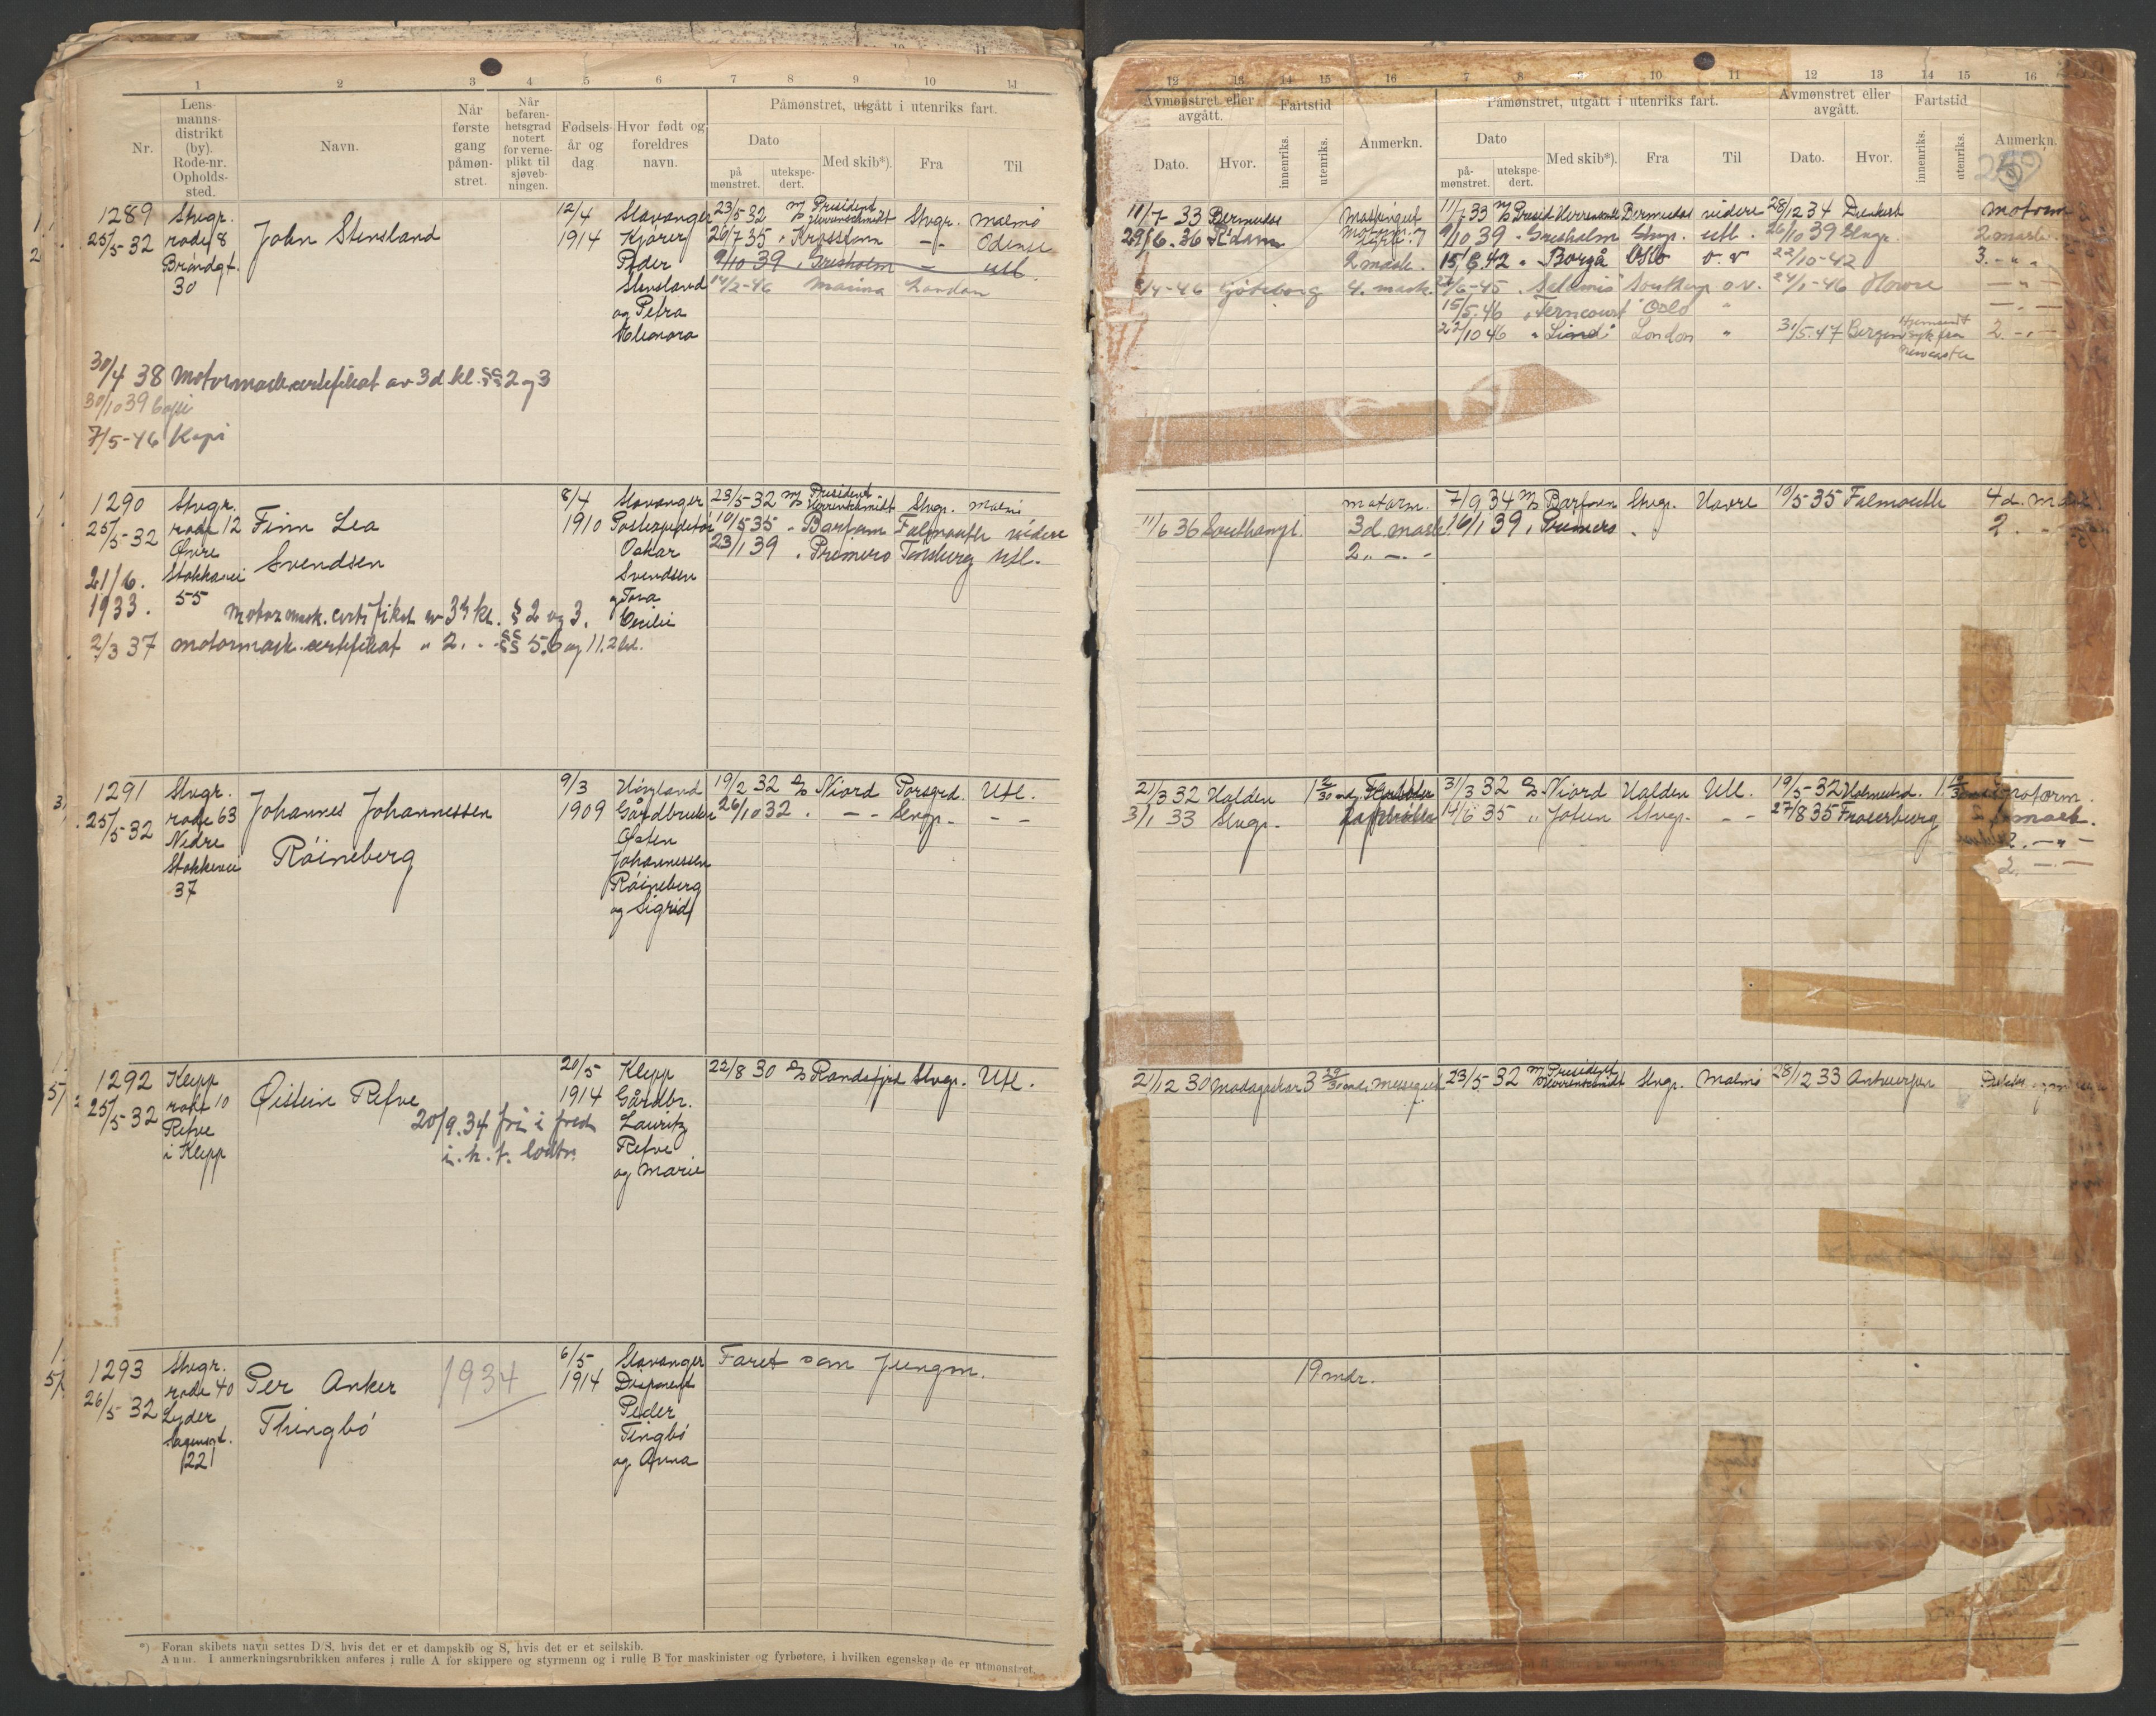 1 2 3 4 5 6 7 8 9 10 11
Nr.
Lens-
manns-
distrikt
(by).
Rode-nr.
Opholds-
sted.
Navn.
Når
første
gang
påmøn-
stret.
Når
befaren-
hetsgrad
notert
for verne-
plikt til
sjøveb-
ningen.
Fødsels-
år og
dag
Hvor født og
foreldres
navn.
Påmønstret, utgått i utenriks fart.
Dato
på
mønstret.
utekspe-
dert.
Med skib*).
Fra
Til
1289
25/5-32
Stvgr.
rode 8
30
John Stensland
12/4
1914
Stavanger
Kjører
Peder
Stensland
og Petra
Eleonora
23/5-32 M/S President Herrenschmidt Stvgr. Malmö
26/7 35 " — " — Odense
9/10 39 " Grisholm — utl.
14/2-46 London
30/4 38 Motormask.certifikat av 3d kl. §§ 2 og 3
30/10 39 Kopi
7/5-46 Kopi
1290
25/5-32
Stvgr.
rode 12
Øvre
Stokkavei
55
Finn Lea
Svendsen
8/4
1910
Stavanger
Postexpeditør
Oskar
Svendsen
og Tora
Cecilie
23/5-32 M/S President Herrenschmidt Stvgr. Malmö
10/5 35 " Falmouth videre
23/1 39 " Primero Tønsberg Utl.
21/6.
1933.
Motormask.certifikat av 3die kl. § 2 og 3.
2/3 37 motormask.certifikat " 2. " - §§ 5.6 og 11.2 led.
1291
25/5-32
Stvgr.
rode 63
Nedre
Stokkavei
37
Johannes Johannessen
Røineberg
9/3
1909
Gårdbruker
Johannessen
Røineberg
og Sigrid
19/2 32 D/S Njord Porsgrd. Utl.
26/10 32 " — " — Stvgr. — " —
1292
25/5-32
Klepp
rode 10
Refve
i Klepp
Øistein Refve
20/9.34 fri i fred
i.h.t. lodtr.
20/5
1914
Klepp
Gårdbr.
Lauritz
Refve
og Marie
22/8 30 D/S Randsfjord Stvgr. Utl.
1293
26/5-32
Stvgr.
rode 40
Lyder
Sagensgt.
22
Per Anker
Thingbø
1934
6/5
1914
Stavanger
Disponent
Peder
Tingbø
og Anna
Faret som jungm.
*) Foran skibets navn settes D/S, hvis det er et dampskib og S, hvis det er et seilskib.
Anm. I anmerkningsrubrikken anføres i rulle A for skippere og styrmenn og i rulle B for maskinister og fyrbøtere, i hvilken egenskap de er utmønstret.
12 13 14 15 16 7 8 9 10 11 12 13 14 15 16
Avmønstret eller
avgått.
Dato.
Hvor.
Fartstid
innenriks.
utenriks.
Anmerkn.
Påmønstret, utgått i utenriks fart.
Dato
på-
mønstret.
utekspe-
dert.
Med skib*).
Fra
Til
Avmønstret eller
avgått.
Dato.
Hvor.
Fartstid
innenriks.
utenriks.
Anmerkn.
11/7 33 Bermudas Maskingut 11/7 33 M/S Presid. Herrenschmidt Bermudas videre 28/12 34 motorm
29/6.36 R'dam 9/10 39 " Grisholm Stvgr. utl. 26/10 39 Stvgr. 2 mask.
2 mask. 15/6 42 " Borgå Oslo o.v 22/10-42 3. - " -
Göteborg 4. mask. o.v. 24/1-46 — " —
15/5-46 " Ferncourt Oslo " — " —
22/10 46 London " 31/5.47 Bergen Hjemsendt syk fra Newcastle 2 - " -
motorm. 7/9 34 M/S Stvgr. Havre 10/5 35 Falmouth 4d. mask.
11/6 36 Southampt. 3d mask. 16/1 39 " Primero " 2 " -
2 " — " -
21/3 32 Halden 31/3 32 D/S Njord Halden Utl. 19/5-32 Holmestrd. motorm.
3/1 33 Stvgr. 14/6 35 " Jotun Stvgr. — " — 27/8 35 Fraserburg 2 mask.
2. — " —
2. — " —
21/12 30 Madagaskar 3 29/30 mdr Messegut 23/5 32 M/S President Herrenschmidt Stvgr. Malmö 28/12 33 Antwerpen
19 mdr.